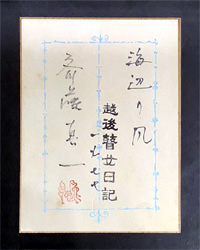 海辺の風
越後瞽女日記
一九七七
斎藤真一